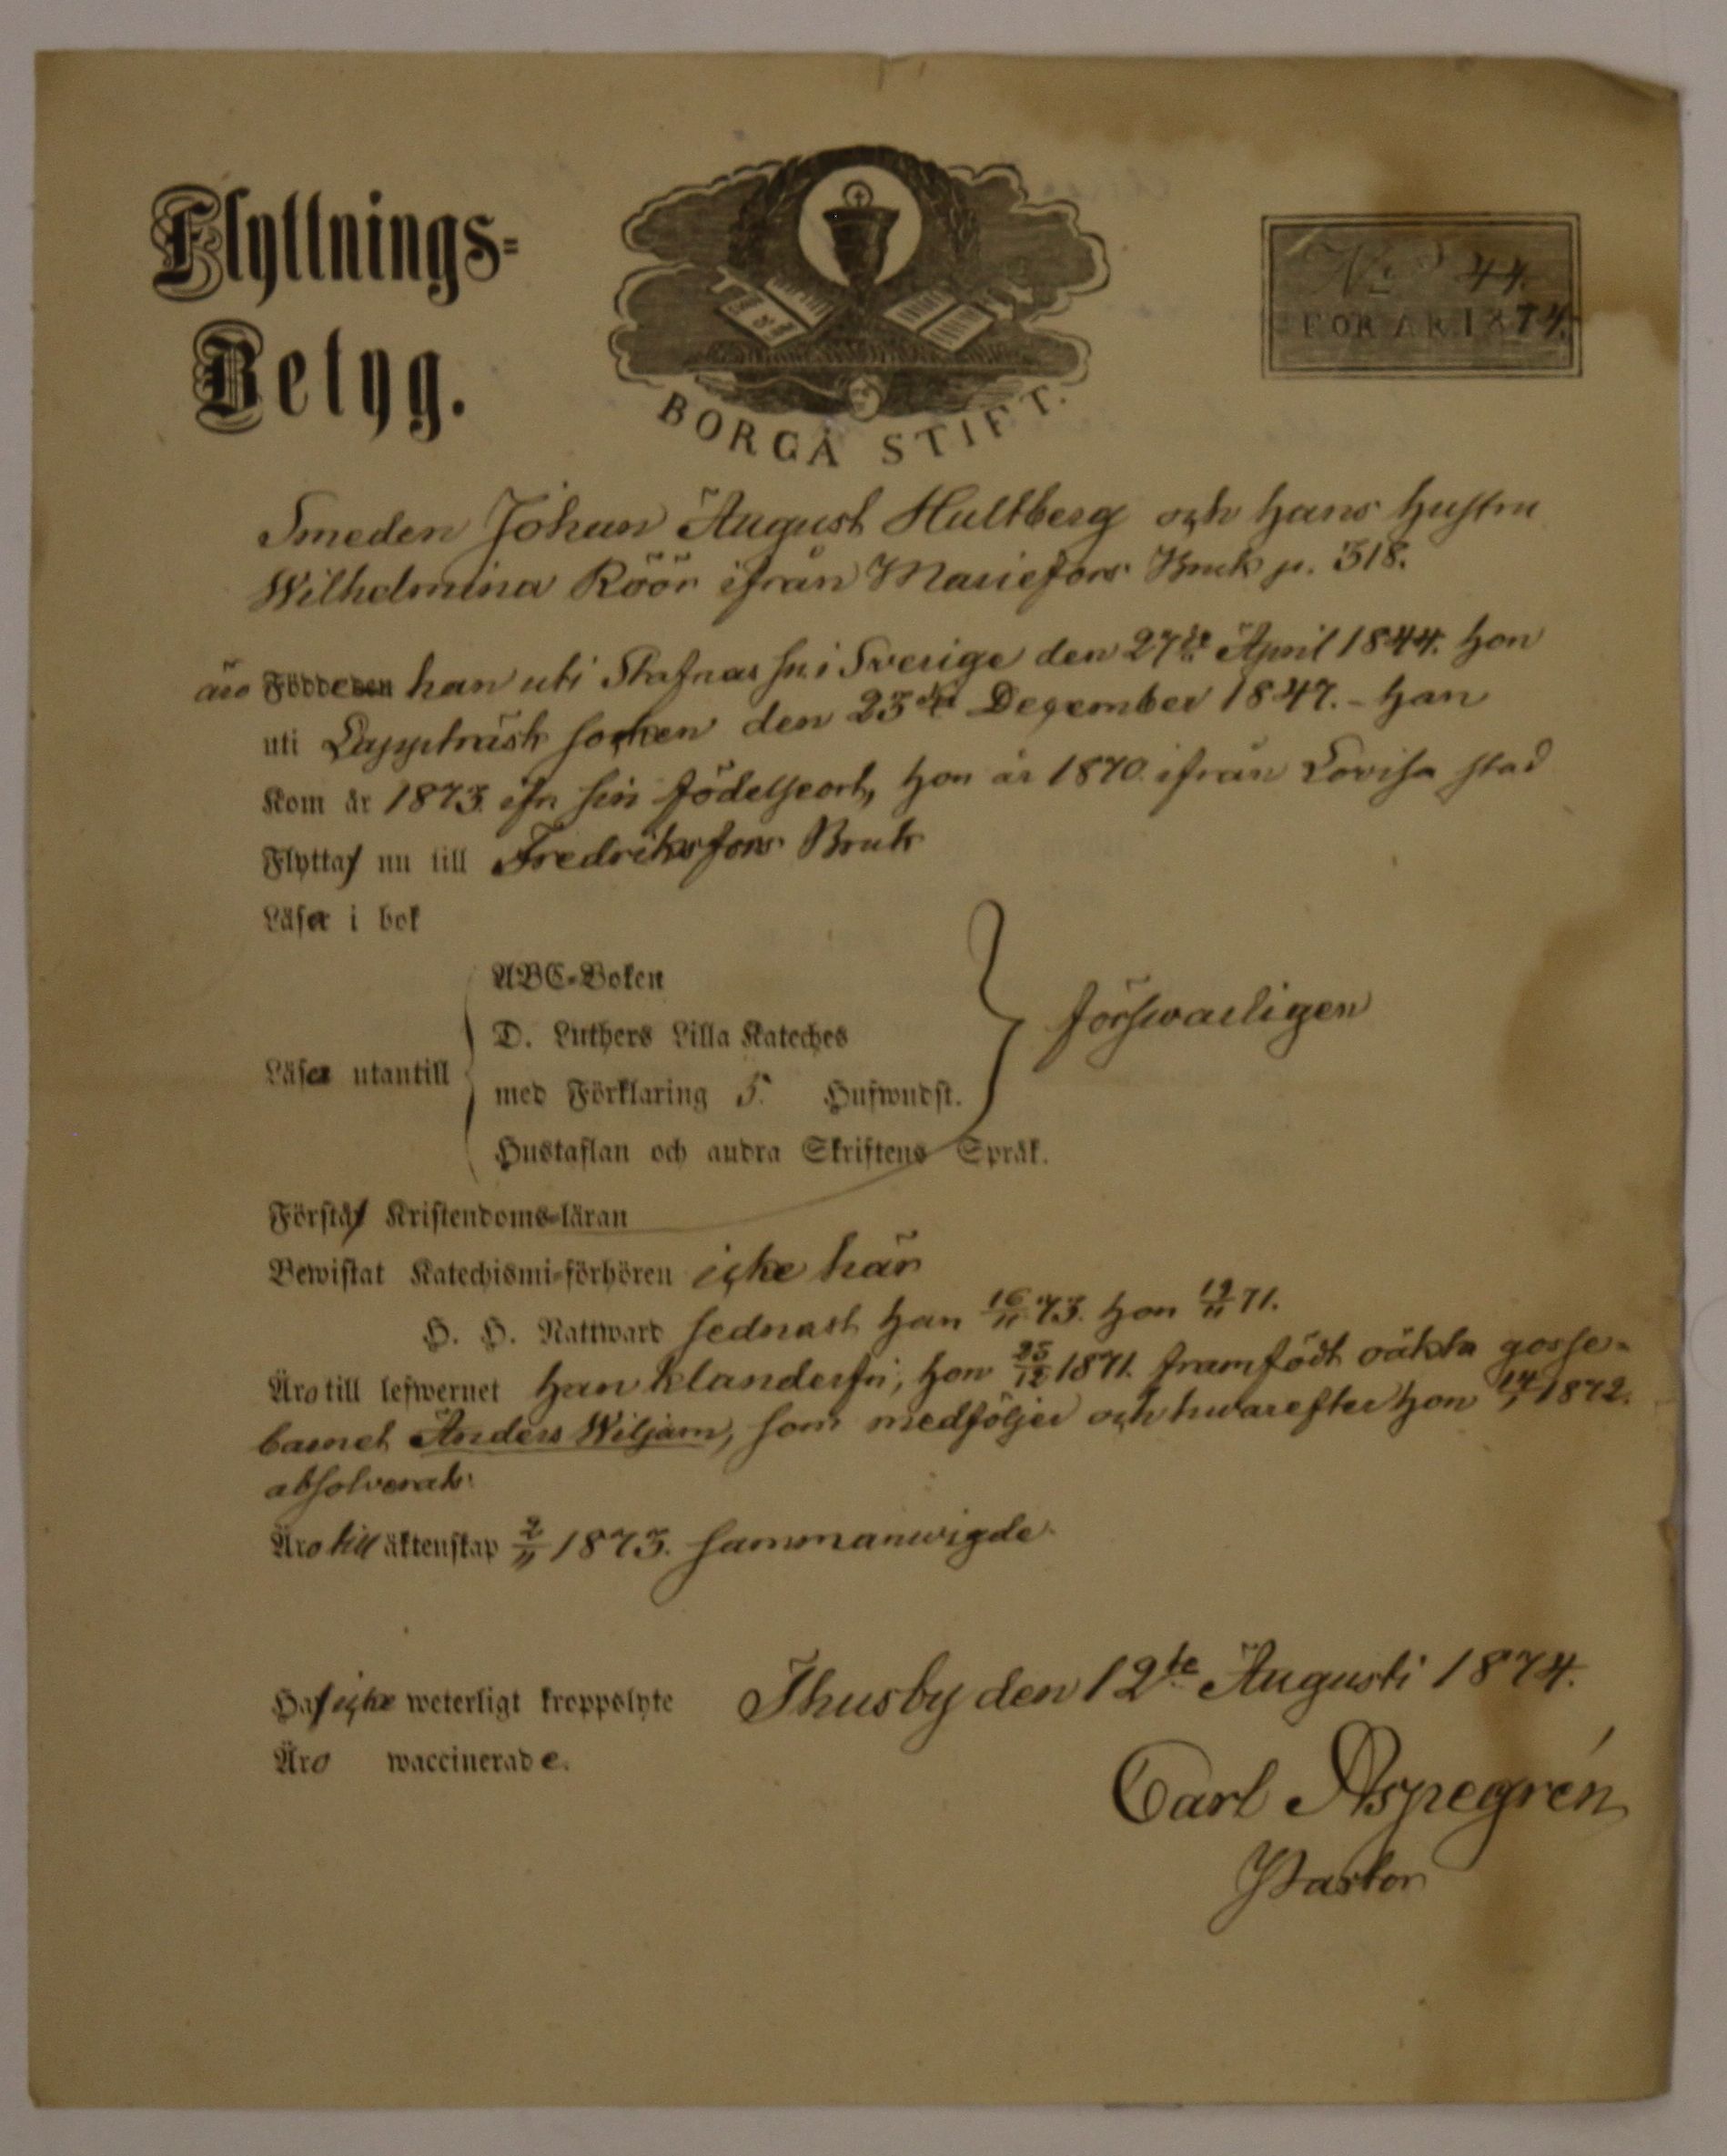 Flyttnings-
Betyg.
BORGÅ STIFT.
No 44.
FÖR ÅR 1874.
Smeden Johan August Hultberg och hans hustru
Wilhelmina Röör ifrån Mariefors Bruk p. 318.
äro Födde han uti Skafnas sn i Sverige den 27de April 1844. hon
uti Lappträsk socken den 23dje December 1847. - Han
Kom år 1873. ifr. sin födelseort, hon år 1870. ifrån Lovisa stad
Flytta nu till Fredriksfors Bruk
Läsa i bok
ABC-Boken
D. Luthers Lilla Kateches
Läsa utantill
med Förklaring 5. Hufwudst.
Hustaflan och andra Skriftens Språk.
försvarligen
Förstå Kristendoms-läran
Bewistat Katechismi-förhören icke här
H. H. Nattward sednast han 16/11 73. hon 19/11 71.
Äro till lefwernet han klanderfri, hon 25/12 1871. framfödt oäkta gosse-
barnet Anders Wiljam, som medföljer och hwarefter hon 14/1 1872.
absolverats.
Äro till äktenskap 2/11 1873. sammanwigde.
Haf icke weterligt kroppslyte
Thusby den 12te Augusti 1874.
Äro waccinerade.
Carl Aspegrén
Pastor